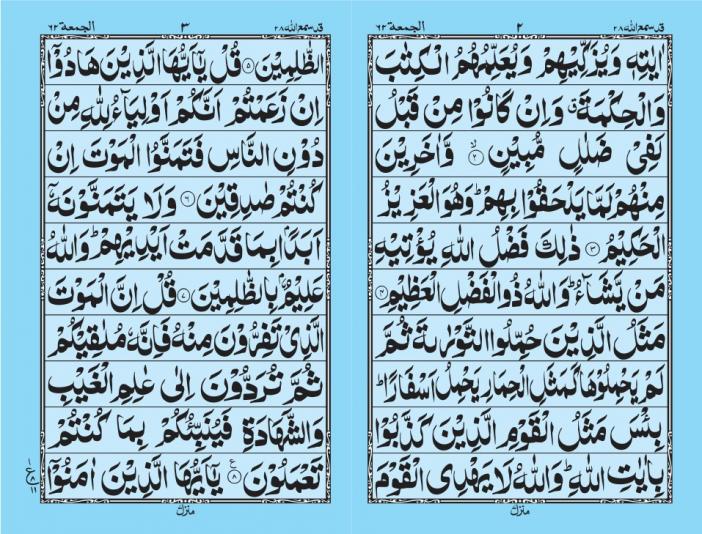 قد سمع الله ٢٨ ٢ الجمعة ٦٢
اٰيٰتِهٖ وَيُزَكِّيْهِمْ وَيُعَلِّمُهُمُ الْكِتٰبَ
وَالْحِكْمَةَ ۗ وَاِنْ كَانُوْا مِنْ قَبْلُ
لَفِيْ ضَلٰلٍ مُّبِيْنٍ ۙ‏﴿۲﴾ وَّاٰخَرِيْنَ
مِنْهُمْ لَمَّا يَلْحَقُوْا بِهِمْ ؕ وَهُوَ الْعَزِيْزُ
الْحَكِيْمُ ﴿۳﴾ ذٰلِكَ فَضْلُ اللّٰهِ يُؤْتِيْهِ
مَنْ يَّشَآءُ ؕ وَاللّٰهُ ذُو الْفَضْلِ الْعَظِيْمِ ﴿۴﴾
مَثَلُ الَّذِيْنَ حُمِّلُوا التَّوْرٰىةَ ثُمَّ
لَمْ يَحْمِلُوْهَا كَمَثَلِ الْحِمَارِ يَحْمِلُ اَسْفَارًا ؕ
بِئْسَ مَثَلُ الْقَوْمِ الَّذِيْنَ كَذَّبُوْا
بِاٰيٰتِ اللّٰهِ ؕ وَاللّٰهُ لَا يَهْدِى الْقَوْمَ
منزل
قد سمع الله ٢٨ ٣ الجمعة ٦٢
الظّٰلِمِيْنَ ﴿۵﴾ قُلْ يٰۤاَيُّهَا الَّذِيْنَ هَادُوْۤا
اِنْ زَعَمْتُمْ اَنَّكُمْ اَوْلِيَآءُ لِلّٰهِ مِنْ
دُوْنِ النَّاسِ فَتَمَنَّوُا الْمَوْتَ اِنْ
كُنْتُمْ صٰدِقِيْنَ ﴿۶﴾ وَلَا يَتَمَنَّوْنَهٗۤ
اَبَدًۢا بِمَا قَدَّمَتْ اَيْدِيْهِمْ ؕ وَاللّٰهُ
عَلِيْمٌۢ بِالظّٰلِمِيْنَ ﴿۷﴾ قُلْ اِنَّ الْمَوْتَ
الَّذِيْ تَفِرُّوْنَ مِنْهُ فَاِنَّهٗ مُلٰقِيْكُمْ
ثُمَّ تُرَدُّوْنَ اِلٰى عٰلِمِ الْغَيْبِ
وَالشَّهَادَةِ فَيُنَبِّئُكُمْ بِمَا كُنْتُمْ
تَعْمَلُوْنَ ﴿۸﴾ ع يٰۤاَيُّهَا الَّذِيْنَ اٰمَنُوْۤا
١ ع ٨ ١١
منزل